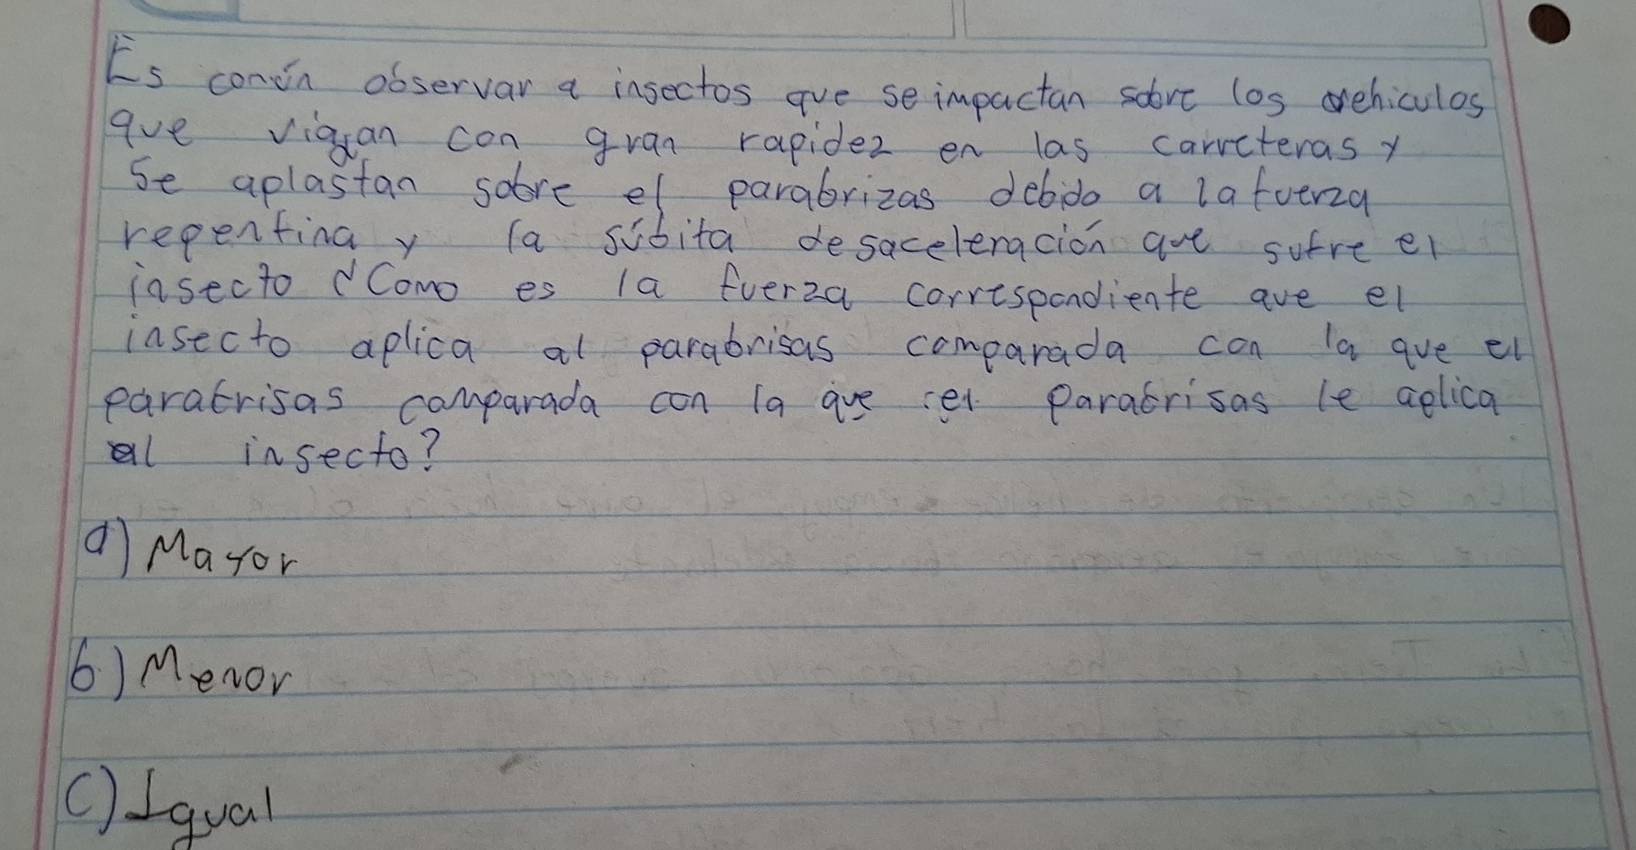 Es común observar a insectos que se impactan sobre los vehiculos
que viajan con gran rapidez en las carreteras y
se aplastan sobre el parabrizas debido a la fuerza
repentina y la súbita desaceleración que sufre el
insecto ¿Como es la fuerza correspondiente que el
insecto aplica al parabrisas comparada con la que el
parabrisas comparada con la que el parabrisas le aplica
al insecto?
a) Mayor
b) Menor
C) Igual